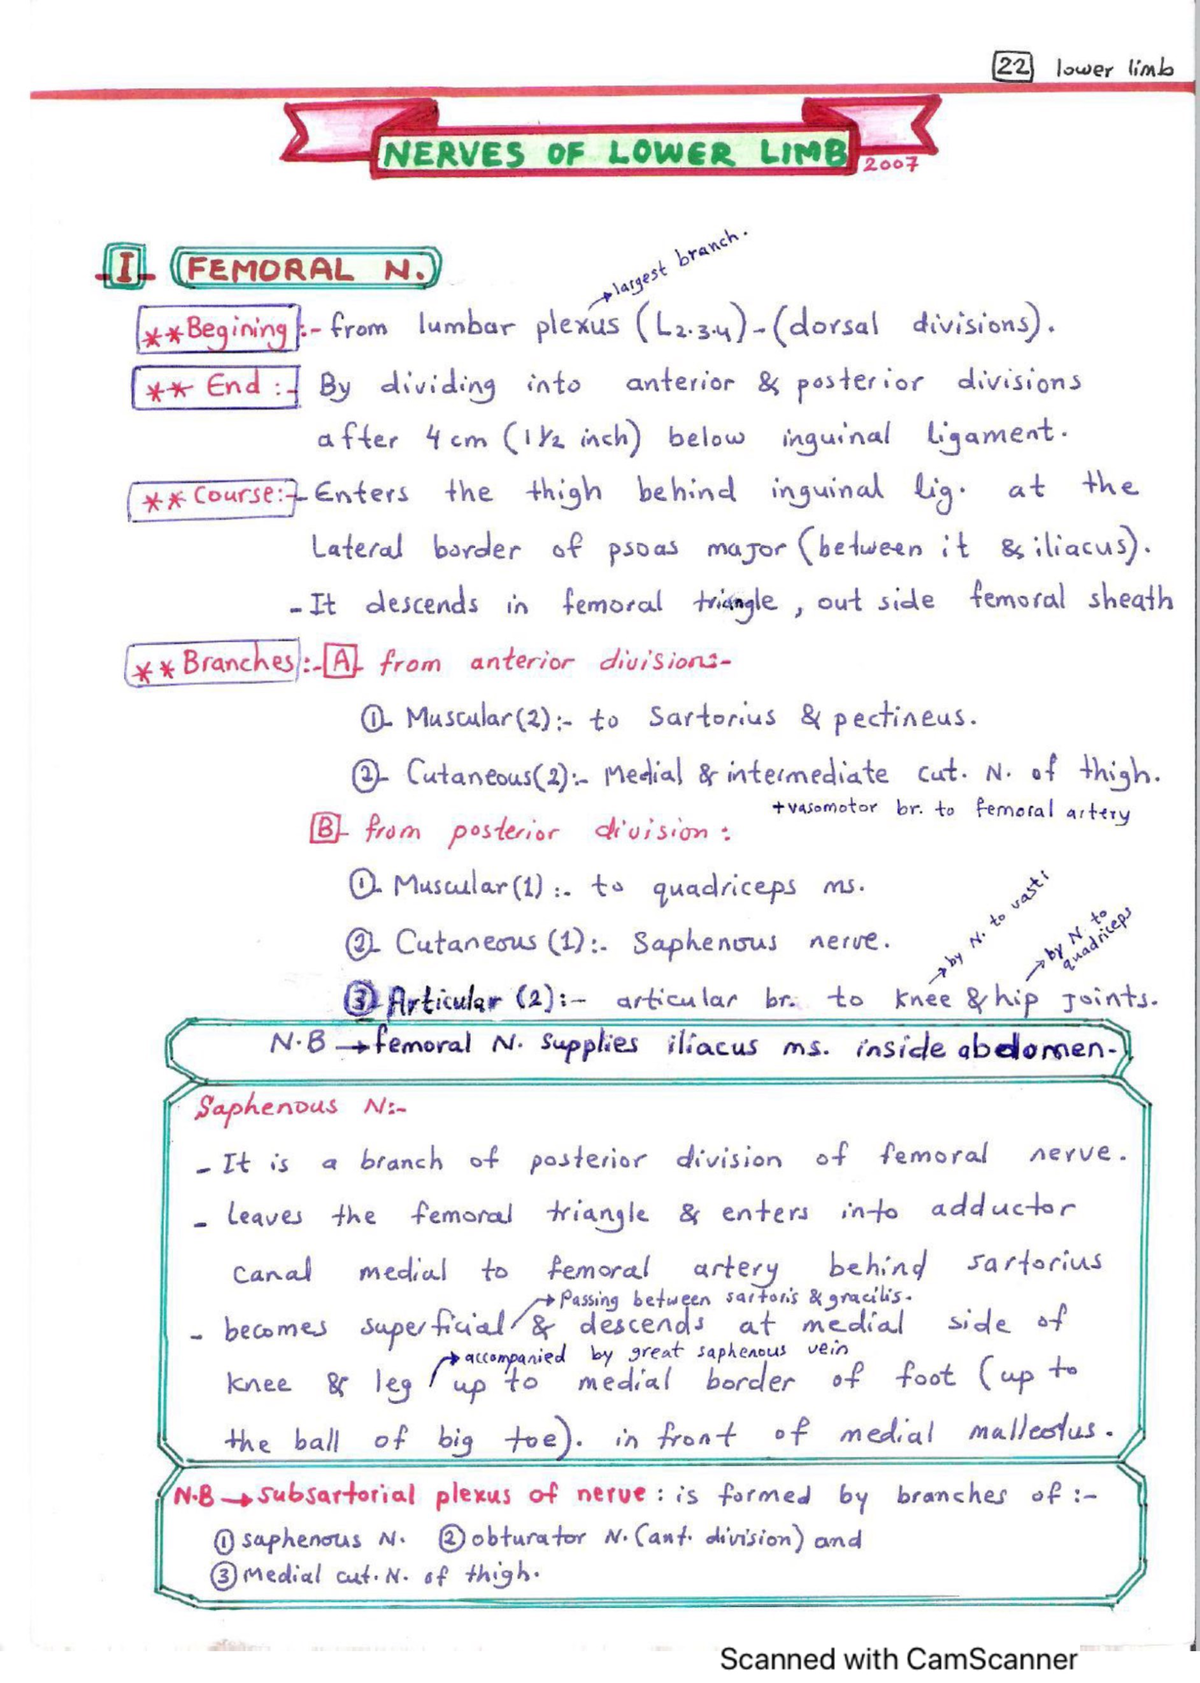 22 lower limb
NERVES OF LOWER LIMB 2007
I FEMORAL N.
→largest branch.
**Begining :- from lumbar plexus (L2.3.4)-(dorsal divisions).
** End :- By dividing into anterior & posterior divisions
after 4 cm (1 1/2 inch) below inguinal ligament.
** Course:- Enters the thigh behind inguinal lig. at the
Lateral border of psoas major (between it & iliacus).
- It descends in femoral triangle, out side femoral sheath
** Branches:- A from anterior division:-
①- Muscular(2):- to Sartorius & pectineus.
②- Cutaneous(2):- Medial & intermediate cut. N. of thigh.
+vasomotor br. to femoral artery
B from posterior division:
①- Muscular(1):- to quadriceps ms.
→by N. to vasti
→by N. to quadriceps
②- Cutaneous (1):- Saphenous nerve.
③ Articular (2):- articular br. to knee & hip joints.
N.B → femoral N. supplies iliacus ms. inside abdomen.
Saphenous N:-
- It is a branch of posterior division of femoral nerve.
- Leaves the femoral triangle & enters into adductor
canal medial to femoral artery behind sartorius
→ Passing between sartoris & gracilis.
- becomes superficial & descends at medial side of
→ accompanied by great saphenous vein
knee & leg up to medial border of foot (up to
the ball of big toe). in front of medial malleolus.
N.B → subsartorial plexus of nerve: is formed by branches of :-
① saphenous N. ② obturator N. (ant. division) and
③ Medial cut. N. of thigh.
Scanned with CamScanner